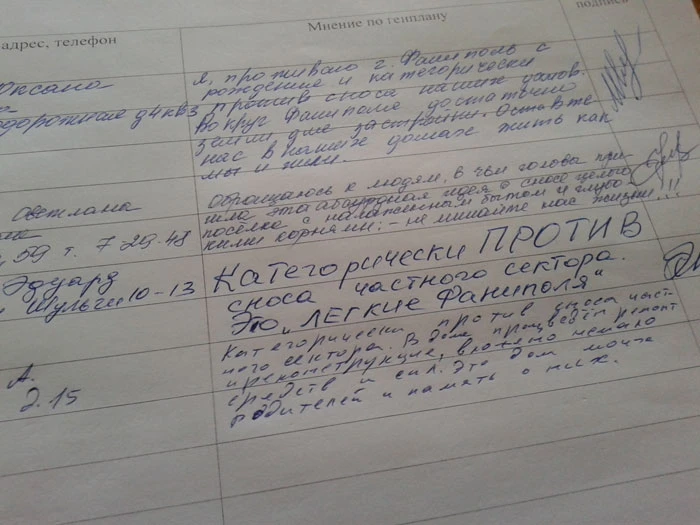 адрес, телефон
Мнение по генплану
подпись
Оксана
Я, проживаю г. Фаниполь с
рождения и категорически
против сноса наших домов.
дорожная д4 кв3
Вокруг Фаниполя достаточно
земли для застройки. Оставте
нас в наших домах жить как
мы и жили.
Светлана
59 т. 7 29-48
Обращаюсь к людям, в чьи головы при-
шла эта абсурдная идея о сносе целого
поселка с налаженным бытом и глубо-
кими корнями: - не лишайте нас жизни!!!
Эдуард
Шульги 10-13
Категорически ПРОТИВ
сноса частного сектора.
Это "ЛЕГКИЕ Фаниполя"
А.
д. 15
Категорически против сноса част-
ного сектора. В доме произведен ремонт
и реконструкция, вложено немало
средств и сил. Это дом моих
родителей и память о них.